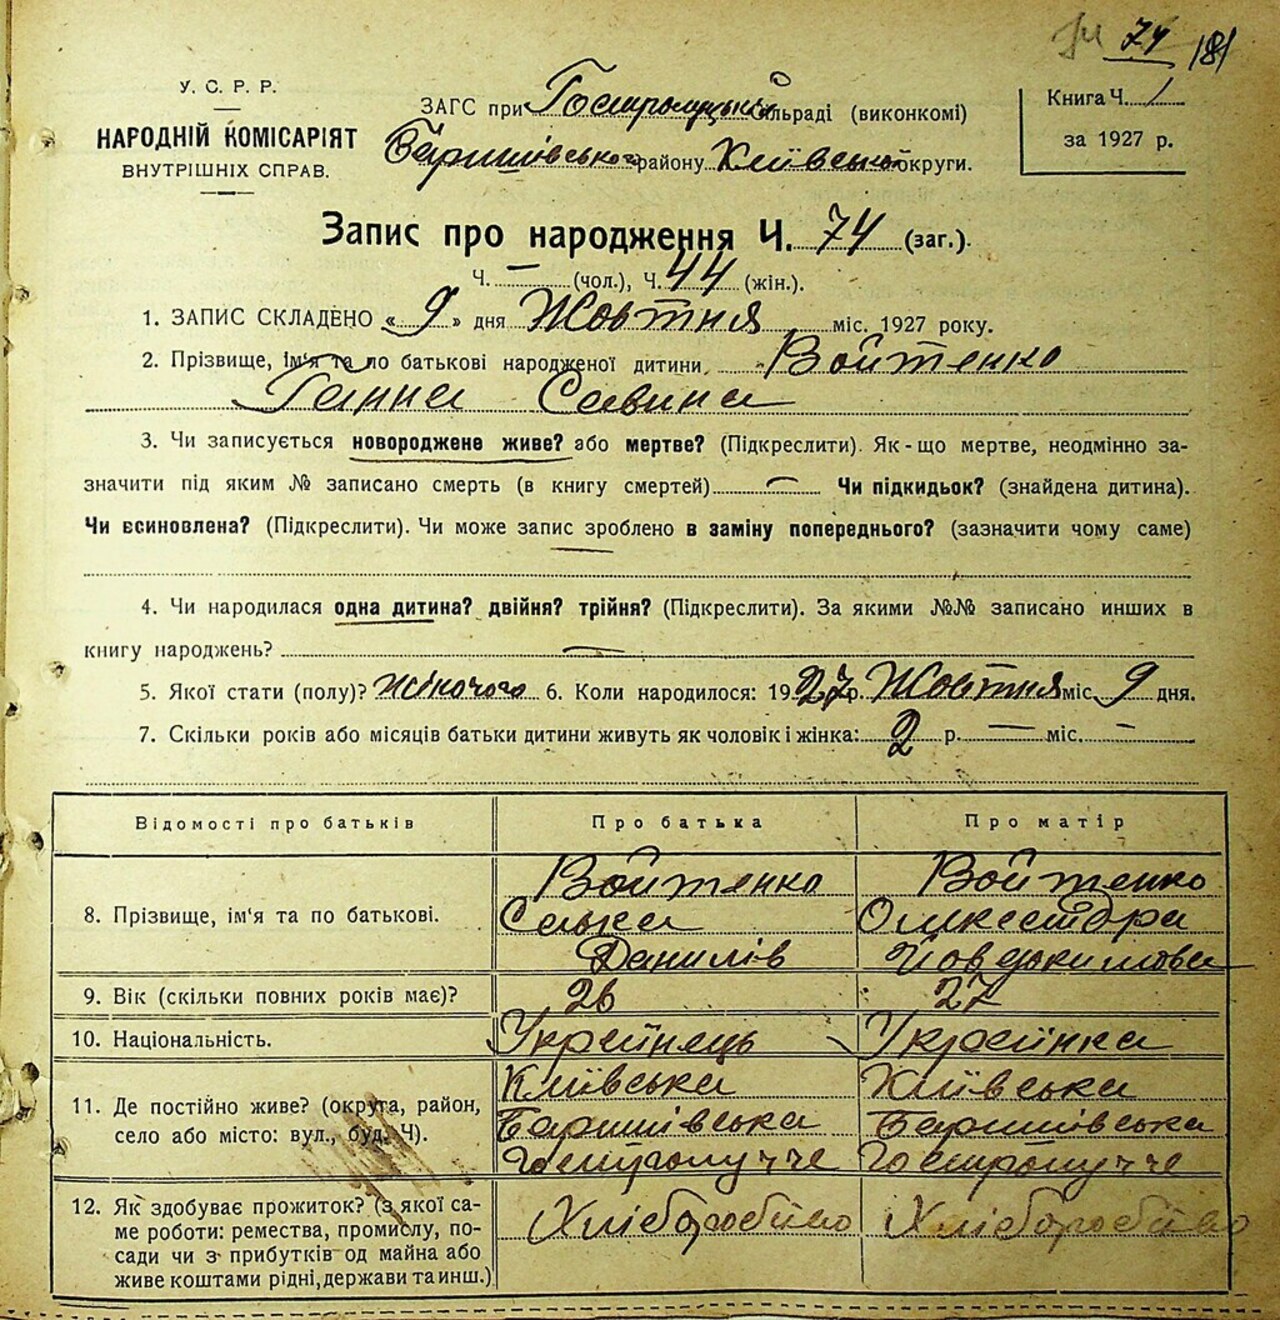 74 181
У. С. Р. Р.
НАРОДНІЙ КОМІСАРІЯТ
ВНУТРІШНІХ СПРАВ.
ЗАГС при Гостролуцькій сільраді (виконкомі)
Баришівського району Київської округи.
Книга Ч. 1
за 1927 р.
Запис про народження Ч. 74 (заг.).
Ч. — (чол.), Ч. 44 (жін.).
1. ЗАПИС СКЛАДЕНО « 9 » дня Жовтня міс. 1927 року.
2. Прізвище, ім'я та по батькові народженої дитини Войтенко
Ганна Савина
3. Чи записується новороджене живе? або мертве? (Підкреслити). Як-що мертве, неодмінно за-
значити під яким № записано смерть (в книгу смертей) — Чи підкидьок? (знайдена дитина).
Чи всиновлена? (Підкреслити). Чи може запис зроблено в заміну попереднього? (зазначити чому саме)
4. Чи народилася одна дитина? двійня? трійня? (Підкреслити). За якими №№ записано инших в
книгу народжень? —
5. Якої стати (полу)? жіночого 6. Коли народилося: 1927 р. Жовтня міс. 9 дня.
7. Скільки років або місяців батьки дитини живуть як чоловік і жінка: 2 р. — міс. —
Відомості про батьків Про батька Про матір
8. Прізвище, ім'я та по батькові.
Войтенко Войтенко
Сава
Данилів Йовдокимова
9. Вік (скільки повних років має)? 26 27
10. Національність. Українець Українка
11. Де постійно живе? (округа, район,
село або місто: вул., буд. Ч).
Київська Київська
Баришівська Баришівська
Гостролуччє Гостролуччє
12. Як здобуває прожиток? (з якої са-
ме роботи: ремества, промислу, по-
сади чи з прибутків од майна або
живе коштами рідні, держави та инш.)
Хліборобство Хліборобство